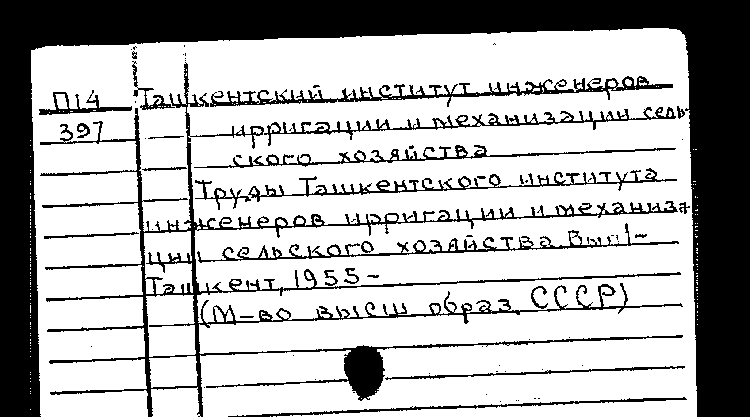 П14 Ташкентский институт инженеров
397 ирригации и механизации сель-
ского хозяйства
Труды Ташкентского института
инженеров ирригации и механиза-
ции сельского хозяйства. Вып 1-
Ташкент, 1955-
(М-во высш образ. СССР)